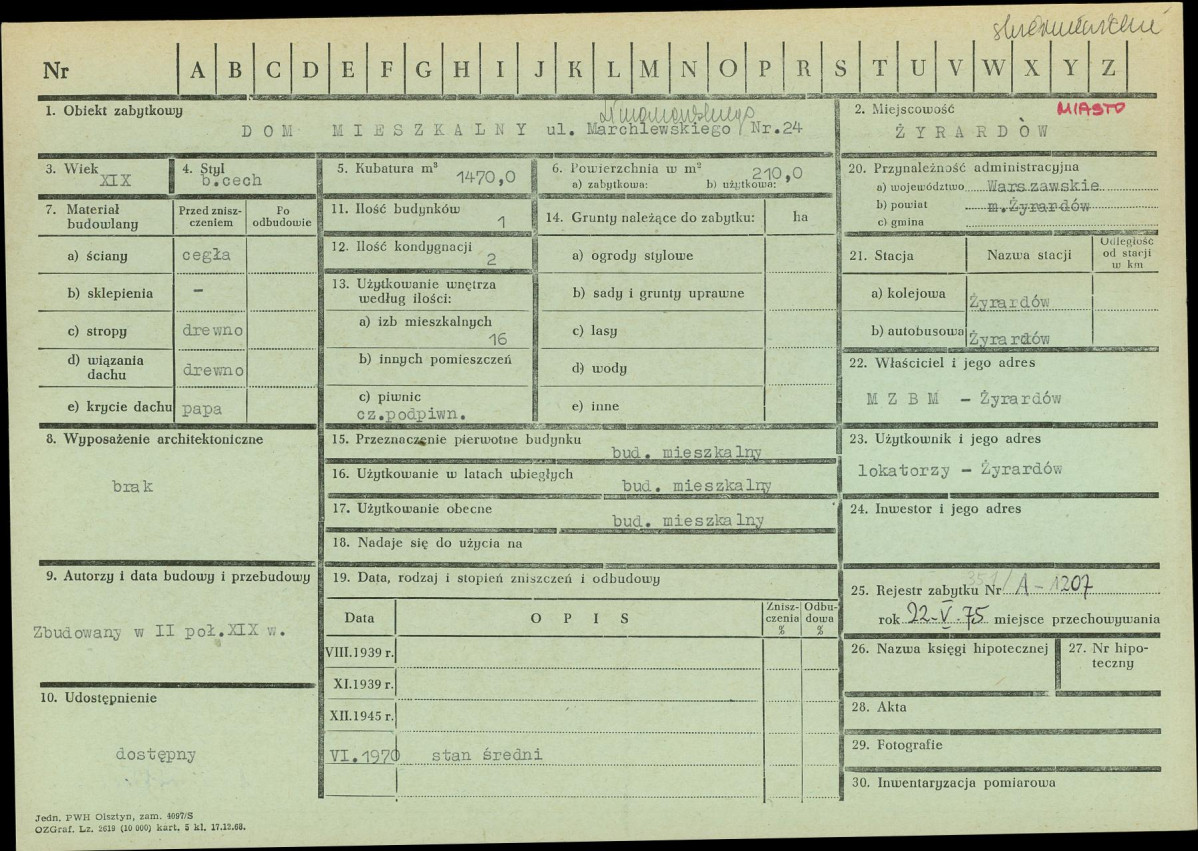 Nr A B C D E F G H I J K L M N O P R S T U V W X Y Z
1. Obiekt zabytkowy
DOM MIESZKALNY ul. Marchlewskiego Nr.24
2. Miejscowość MIASTO
ŻYRARDÓW
3. Wiek
XIX
4. Styl
b.cech
5. Kubatura m³ 1470,0
6. Powierzchnia w m² 210,0
a) zabytkowa: b) użytkowa:
20. Przynależność administracyjna
a) województwo Warszawskie
b) powiat m.Żyrardów
c) gmina
7. Materiał budowlany
Przed zniszczeniem
Po odbudowie
a) ściany cegła
b) sklepienia –
c) stropy drewno
d) wiązania dachu drewno
e) krycie dachu papa
11. Ilość budynków 1
12. Ilość kondygnacji 2
13. Użytkowanie wnętrza
według ilości:
a) izb mieszkalnych
16
b) innych pomieszczeń
c) piwnic
cz.podpiwn.
14. Grunty należące do zabytku: ha
a) ogrody stylowe
b) sady i grunty uprawne
c) lasy
d) wody
e) inne
21. Stacja Nazwa stacji Odległość od stacji w km
a) kolejowa Żyrardów
b) autobusowa Żyrardów
22. Właściciel i jego adres
M Z B M – Żyrardów
8. Wyposażenie architektoniczne
brak
15. Przeznaczenie pierwotne budynku
bud. mieszkalny
16. Użytkowanie w latach ubiegłych
bud. mieszkalny
17. Użytkowanie obecne
bud. mieszkalny
18. Nadaje się do użycia na
23. Użytkownik i jego adres
lokatorzy – Żyrardów
24. Inwestor i jego adres
9. Autorzy i data budowy i przebudowy
Zbudowany w II poł.XIX w.
10. Udostępnienie
dostępny
19. Data, rodzaj i stopień zniszczeń i odbudowy
Data O P I S Zniszczenia % Odbudowa %
VIII.1939 r.
XI.1939 r.
XII.1945 r.
VI.1970 stan średni
25. Rejestr zabytku Nr A-1207
rok 22.V.75 miejsce przechowywania
26. Nazwa księgi hipotecznej
27. Nr hipoteczny
28. Akta
29. Fotografie
30. Inwentaryzacja pomiarowa
Jedn. PWH Olsztyn, zam. 4097/S
OZGraf. Lz. 2619 (10 000) kart. 5 kl. 17.12.68.